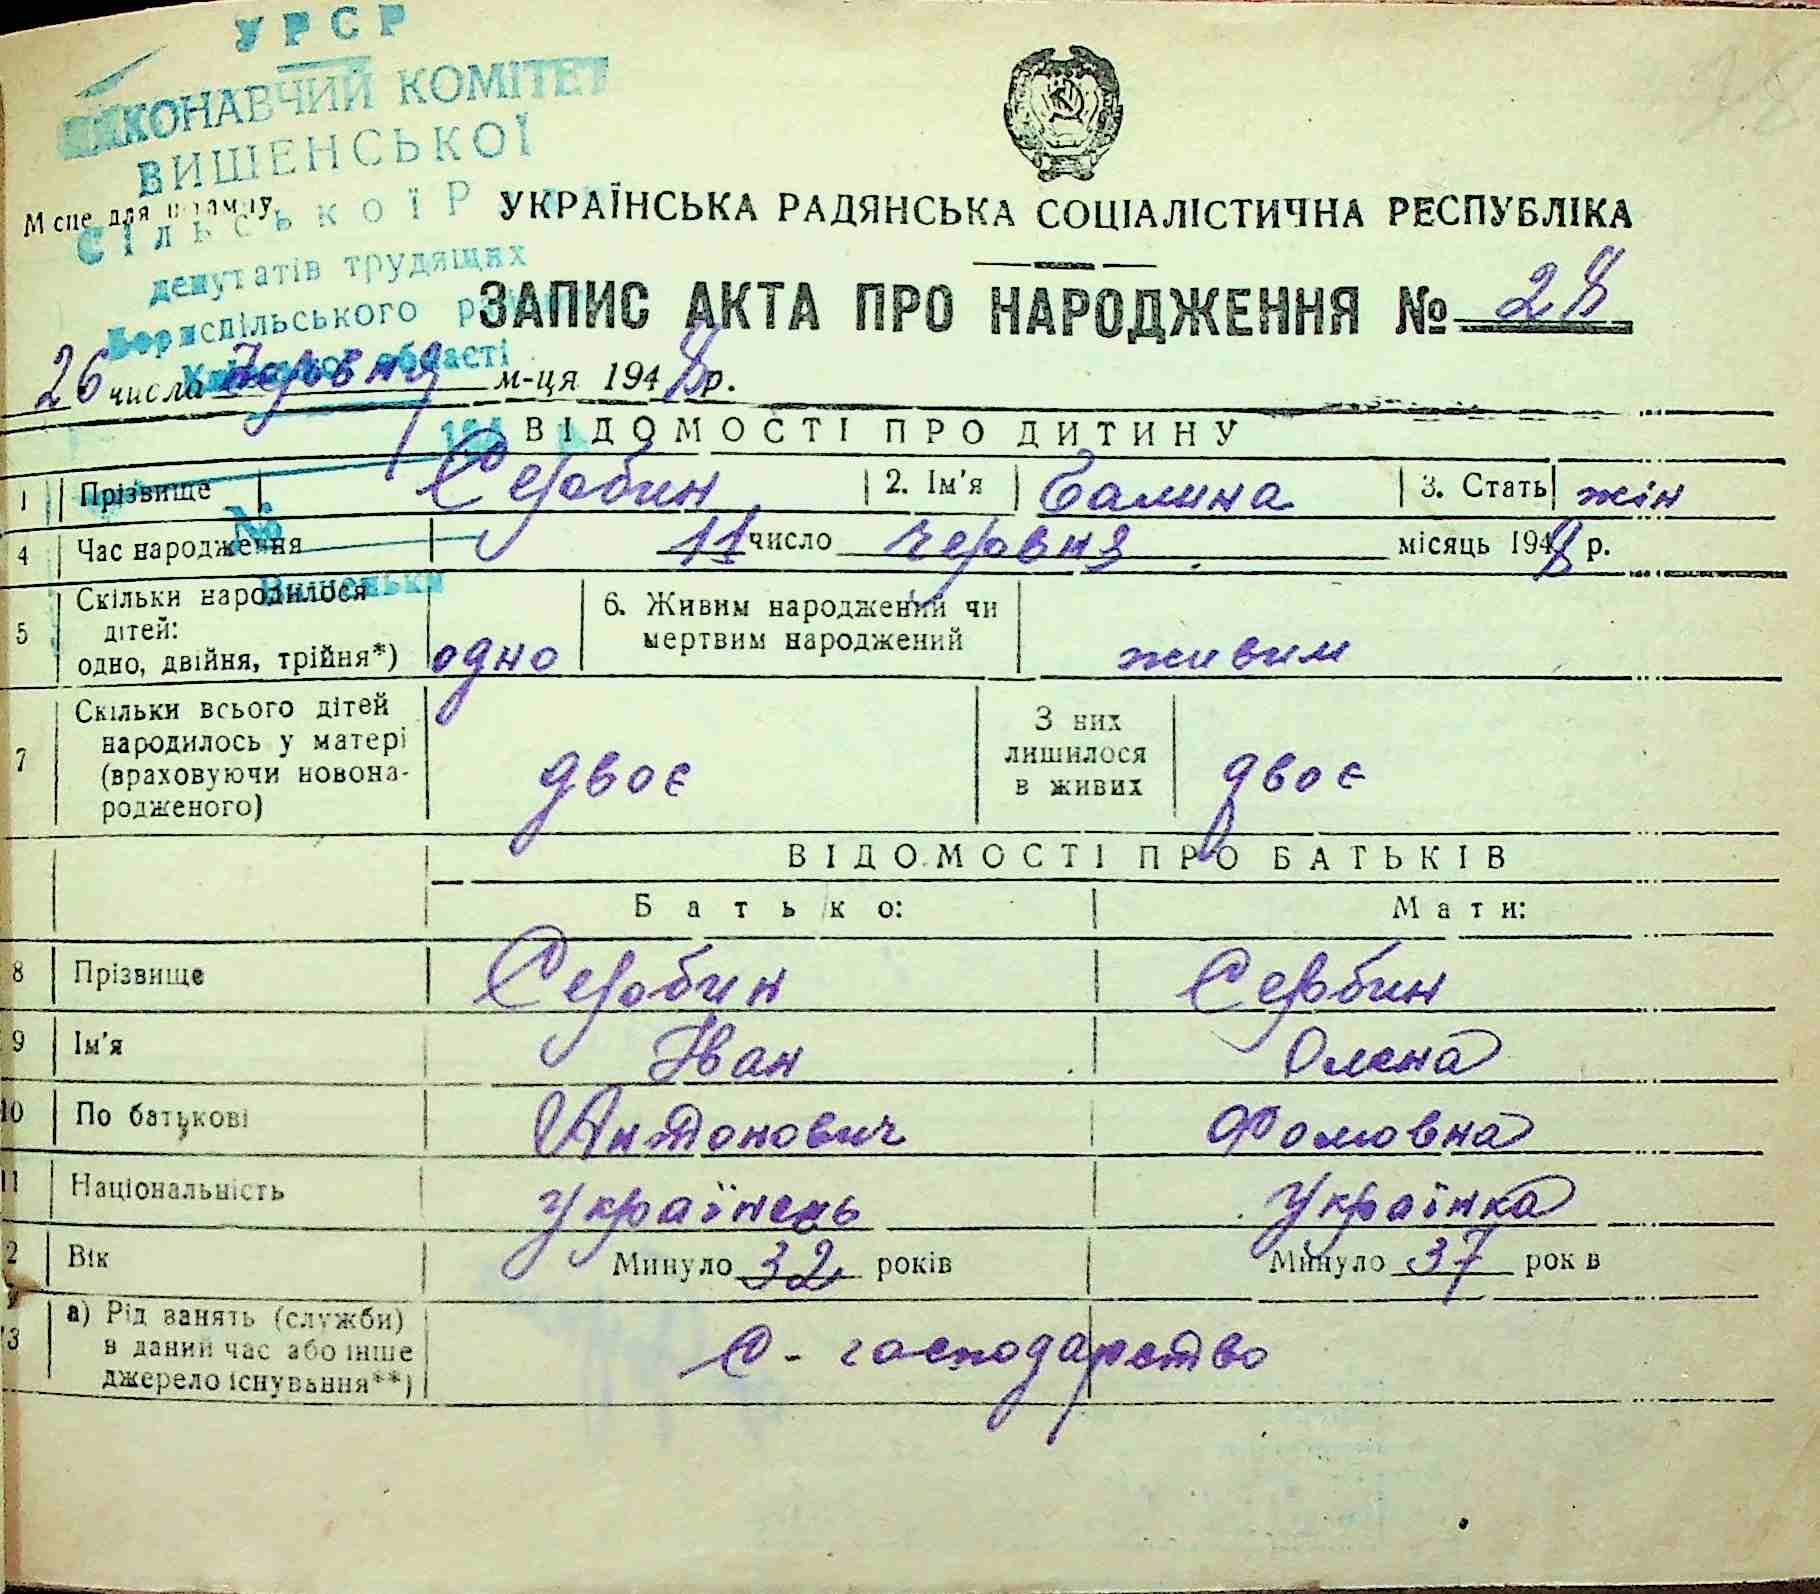 УРСР
ВИКОНАВЧИЙ КОМІТЕТ
ВИШЕНСЬКОЇ
Сільської Р
депутатів трудящих
Бориспільського р
Київської області
194
№
Вишеньки
М сце для штампу
УКРАЇНСЬКА РАДЯНСЬКА СОЦІАЛІСТИЧНА РЕСПУБЛІКА
ЗАПИС АКТА ПРО НАРОДЖЕННЯ № 28
26 числа червня м-ця 1948 р.
ВІДОМОСТІ ПРО ДИТИНУ
1 Прізвище Сербин 2. Ім'я Галина 3. Стать жін
4 Час народження 11 число червня місяць 1948 р.
5 Скільки народилося дітей: одно, двійня, трійня*) одно 6. Живим народжений чи мертвим народжений живим
7 Скільки всього дітей народилось у матері (враховуючи новонародженого) двоє З них лишилося в живих двоє
ВІДОМОСТІ ПРО БАТЬКІВ
Батько: Мати:
8 Прізвище Сербин Сербин
9 Ім'я Іван Олена
10 По батькові Антонович Фомовна
11 Національність українець українка
2 Вік Минуло 32 років Минуло 37 рок в
3 а) Рід занять (служби) в даний час або інше джерело існування**) С-господарство